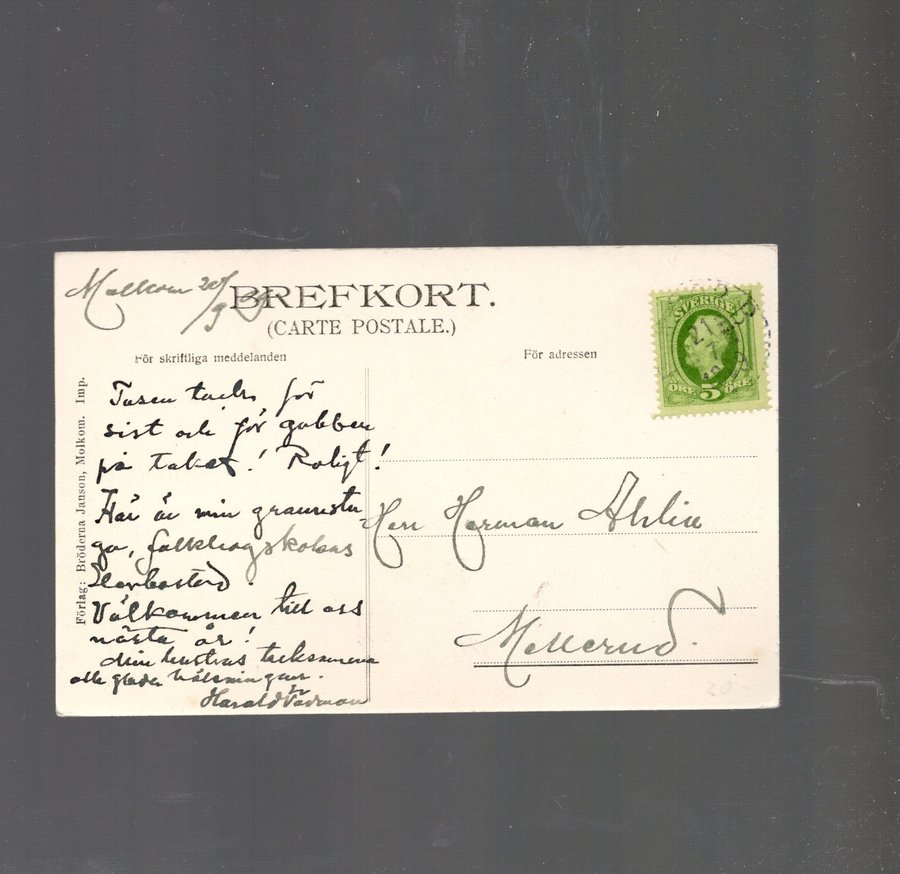 Molkom 20/9
BREFKORT.
(CARTE POSTALE.)
För skriftliga meddelanden
För adressen
SVERIGE
ÖRE 5 ÖRE
21
Förlag: Bröderna Janson, Molkom. Imp.
Tusen tack för
sist och för gubben
på taket! Roligt!
Här är min
ga, folkhögskolans
Välkommen till oss
nästa år!
Min hustrus tacksamma
och glada hälsningar.
Harald
Herr Herman Ahlin
Mellerud.